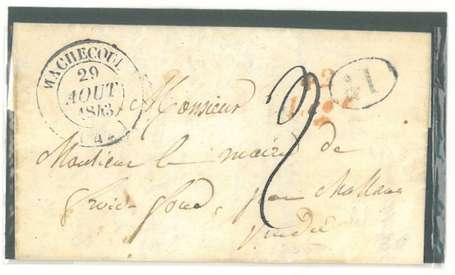 MACHECOUL
29
AOUT
1843
Monsieur
Monsieur le maire de
par Challans
Vendée
2